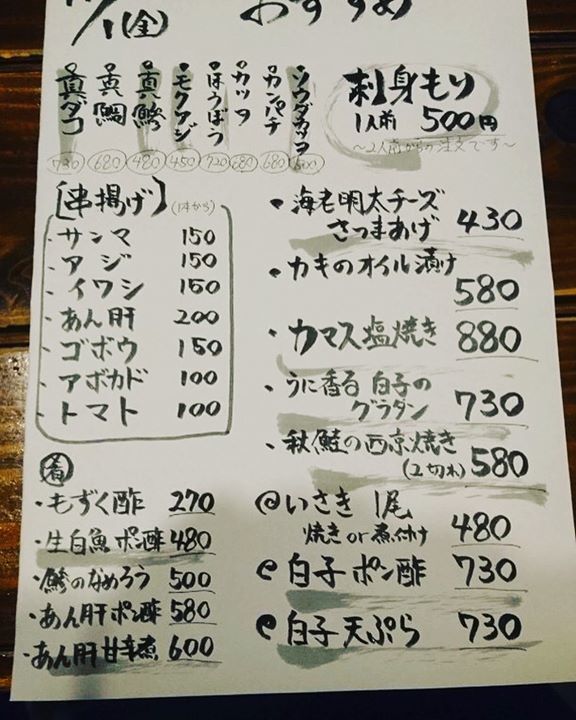 /1(金) おすすめ
真ダコ 730
真鯛 680
真鯵 480
モウカジ 450
ほうぼう 720
カツオ 680
カンパチ 680
ソウダカツヲ 500
刺身もり
1人前 500円
〜2人前からの注文です〜
[串揚げ] (1本から)
・サンマ 150
・アジ 150
・イワシ 150
・あん肝 200
・ゴボウ 150
・アボカド 100
・トマト 100
・海老明太チーズ
さつまあげ 430
・カキのオイル漬け
580
・カマス塩焼き 880
・うに香る白子の
グラタン 730
・秋鮭の西京焼き
(2切れ) 580
肴
・もずく酢 270
・生白魚ポン酢 480
・鯵のなめろう 500
・あん肝ポン酢 580
・あん肝甘辛煮 600
@いさき 1尾
焼きor煮付け 480
@白子ポン酢 730
@白子天ぷら 730